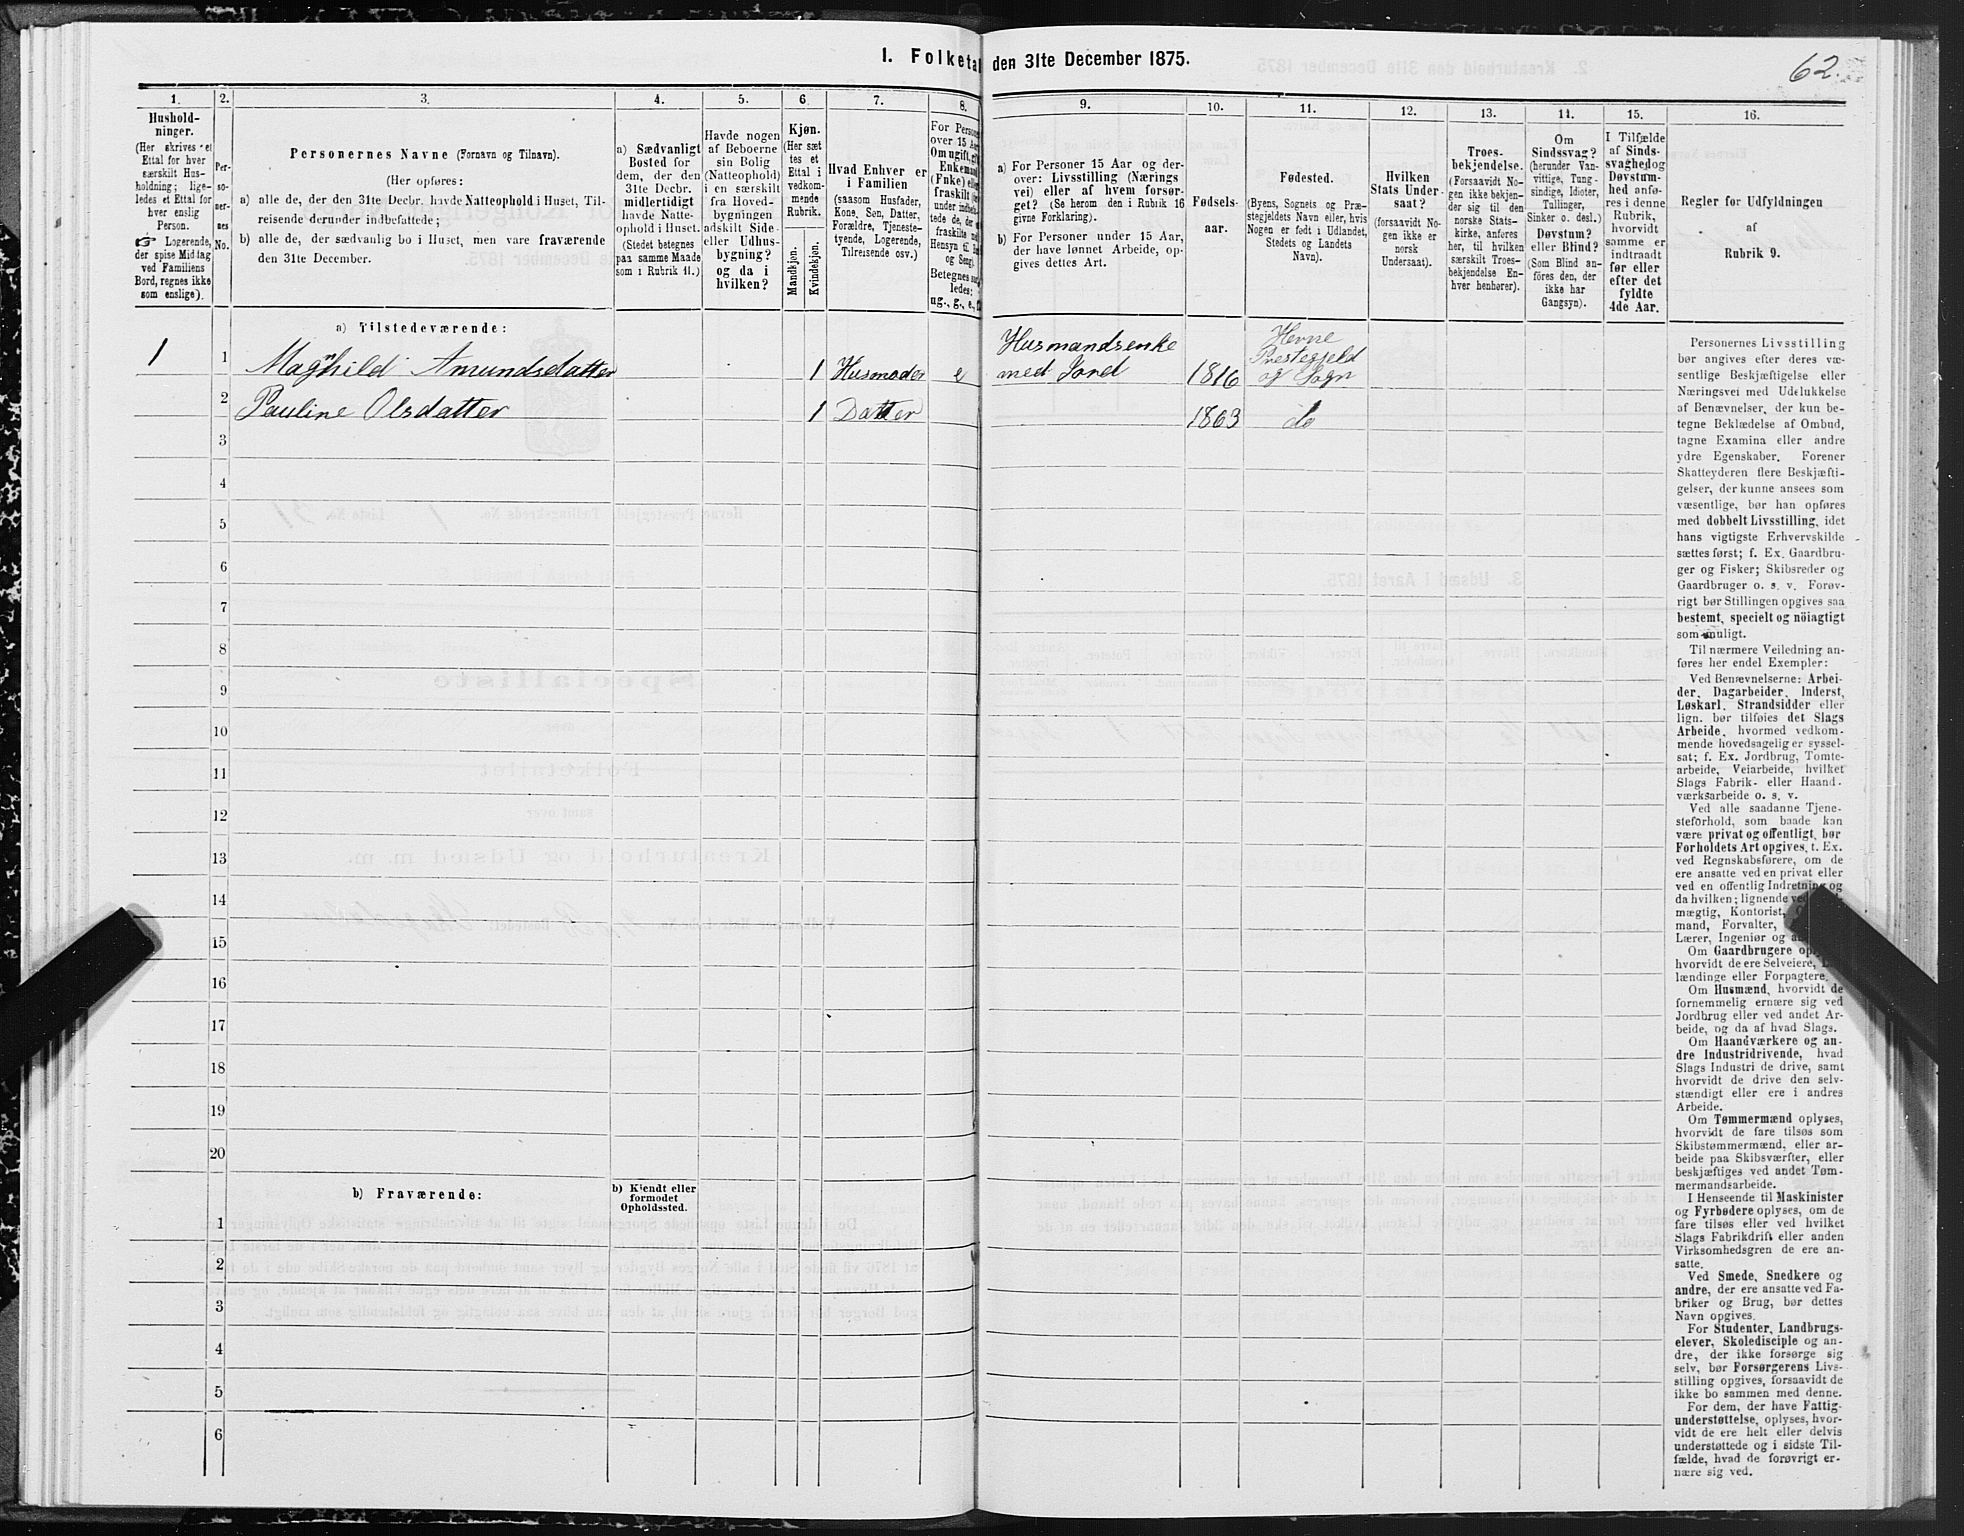 I. Folketal den 31te December 1875.
62.
1. 2. 3. 4. 5. 6. 7. 8. 9. 10. 11. 12. 13. 14. 15. 16.
Hushold-
ninger.
(Her skrives et
Ettal for hver
særskilt Hus-
holdning; lige-
ledes et Ettal for
hver enslig
Person.
☞ Logerende,
der spise Middag
ved Familiens
Bord, regnes ikke
som enslige).
Per-
so-
ner-
nes
No.
Personernes Navne (Fornavn og Tilnavn).
(Her opføres:
a) alle de, der den 31te Decbr. havde Natteophold i Huset, Til-
reisende derunder indbefattede;
b) alle de, der sædvanlig bo i Huset, men vare fraværende
den 31te December.
a) Sædvanligt
Bosted for
dem, der den
31te Decbr.
midlertidigt
havde Natte-
ophold i Huset.
(Stedet betegnes
paa samme Maade
som i Rubrik 11.)
Havde nogen
af Beboerne
sin Bolig
(Natteophold)
i en særskilt
fra Hoved-
bygningen
adskilt Side-
eller Udhus-
bygning?
og da i
hvilken?
Kjøn.
(Her sæt
tes et
Ettal i
vedkom-
mende
Rubrik.
Mandkjøn.
Kvindekjøn.
Hvad Enhver er
i Familien
(saasom Husfader,
Kone, Søn, Datter,
Forældre, Tjeneste-
tyende, Logerende,
Tilreisende osv.)
For Person
over 15 Aar
Om ugift, gi
Enkemand
(Enke) elle
fraskilt
tede de, der
fraskilte
Hensyn til
og Seng).
Betegnes
ledes:
ug., g., e.,
a) For Personer 15 Aar og der-
over: Livsstilling (Nærings
vei) eller af hvem forsør-
get? (Se herom den i Rubrik 16
givne Forklaring).
b) For Personer under 15 Aar,
der have lønnet Arbeide, op-
gives dettes Art.
Fødsels-
aar.
Fødested.
(Byens, Sognets og Præ-
stegjeldets Navn eller, hvis
Nogen er født i Udlandet,
Stedets og Landets
Navn).
Hvilken
Stats Under-
saat?
(forsaavidt No-
gen ikke er
norsk
Undersaat).
Troes-
bekjendelse.
(Forsaavidt No-
gen ikke bekjen-
der sig til den
norske Stats-
kirke, anføres
her, til hvilken
særskilt Troes-
bekjendelse En-
hver henhører).
Om
Sindssvag?
(herunder Van-
vittige, Tung-
sindige, Idioter,
Tullinger,
Sinker o. desl.)
Døvstum?
eller Blind?
(Som Blind an-
føres den, der
ikke har
Gangsyn).
I Tilfælde
af Sinds-
svaghed og
Døvstum-
hed anfø-
res i denne
Rubrik,
hvorvidt
samme er
indtraadt
før eller
efter det
fyldte
4de Aar.
Regler for Udfyldningen
af
Rubrik 9.
a) Tilstedeværende:
1 1 Maghild Amundsdatter 1 Husmoder e Husmandsenke med Jord 1816 Hevne Prestegjeld og Sogn
2 Pauline Olsdatter 1 Datter 1863 do
3
4
5
6
7
8
9
10
11
12
13
14
15
16
17
18
19
20
b) Fraværende:
b) Kjendt eller
formodet
Opholdssted.
1
2
3
4
5
6
Personernes Livsstilling
bør angives efter deres væ-
sentlige Beskjæftigelse eller
Næringsvei med Udelukkelse
af Benævnelser, der kun be-
tegne Beklædelse af Ombud,
tagne Examina eller andre
ydre Egenskaber. Forener
Skatteyderen flere Beskjæfti-
gelser, der kunne ansees som
væsentlige, bør han opføres
med dobbelt Livsstilling, idet
hans vigtigste Erhvervskilde
sættes først; f. Ex. Gaardbru-
ger og Fisker; Skibsreder og
Gaardbruger o. s. v. Forøv-
rigt bør Stillingen opgives saa
bestemt, specielt og nöiagtigt
som muligt.
Til nærmere Veiledning an-
føres her endel Exempler:
Ved Benævnelserne: Arbei-
der, Dagarbeider, Inderst,
Løskarl, Strandsidder eller
lign. bør tilføies det Slags
Arbeide, hvormed vedkom-
mende hovedsagelig er syssel-
sat; f. Ex. Jordbrug, Tomte-
arbeide, Veiarbeide, hvilket
Slags Fabrik- eller Haand-
værksarbeide o. s. v.
Ved alle saadanne Tjene-
steforhold, som baade kan
være privat og offentligt, bør
Forholdets Art opgives, t. Ex.
ved Regnskabsførere, om de
ere ansatte ved en privat eller
ved en offentlig Indretning og
da hvilken; lignende ved
mægtig, Kontorist,
mand, Forvalter,
Lærer, Ingeniør og
Om Gaardbrugere
hvorvidt de ere Selveiere,
lændinge eller Forpagtere.
Om Husmænd, hvorvidt de
fornemmelig ernære sig ved
Jordbrug eller ved andet Ar-
beide, og da af hvad Slags.
Om Haandværkere og an-
dre Industridrivende, hvad
Slags Industri de drive, samt
hvorvidt de drive den selv-
stændigt eller ere i andres
Arbeide.
Om Tømmermænd oplyses,
hvorvidt de fare tilsøs som
Skibstømmermænd, eller ar-
beide paa Skibsværfter, eller
beskjæftiges ved andet Tøm-
mermandsarbeide.
I Henseende til Maskinister
og Fyrbødere oplyses, om de
fare tilsøs eller ved hvilket
Slags Fabrikdrift eller anden
Virksomhedsgren de ere an-
satte.
Ved Smede, Snedkere og
andre, der ere ansatte ved Fa-
briker og Brug, bør dettes
Navn opgives.
For Studenter, Landbrugs-
elever, Skoledisciple og an-
dre, der ikke forsørge sig
selv, bør Forsørgerens Livs-
stilling opgives, forsaavidt de
ikke bo sammen med denne.
For dem, der have Fattig-
understøttelse, oplyses, hvor-
vidt de ere helt eller delvis
understøttede og i sidste Til-
fælde, hvad de forøvrigt er-
nære sig ved.